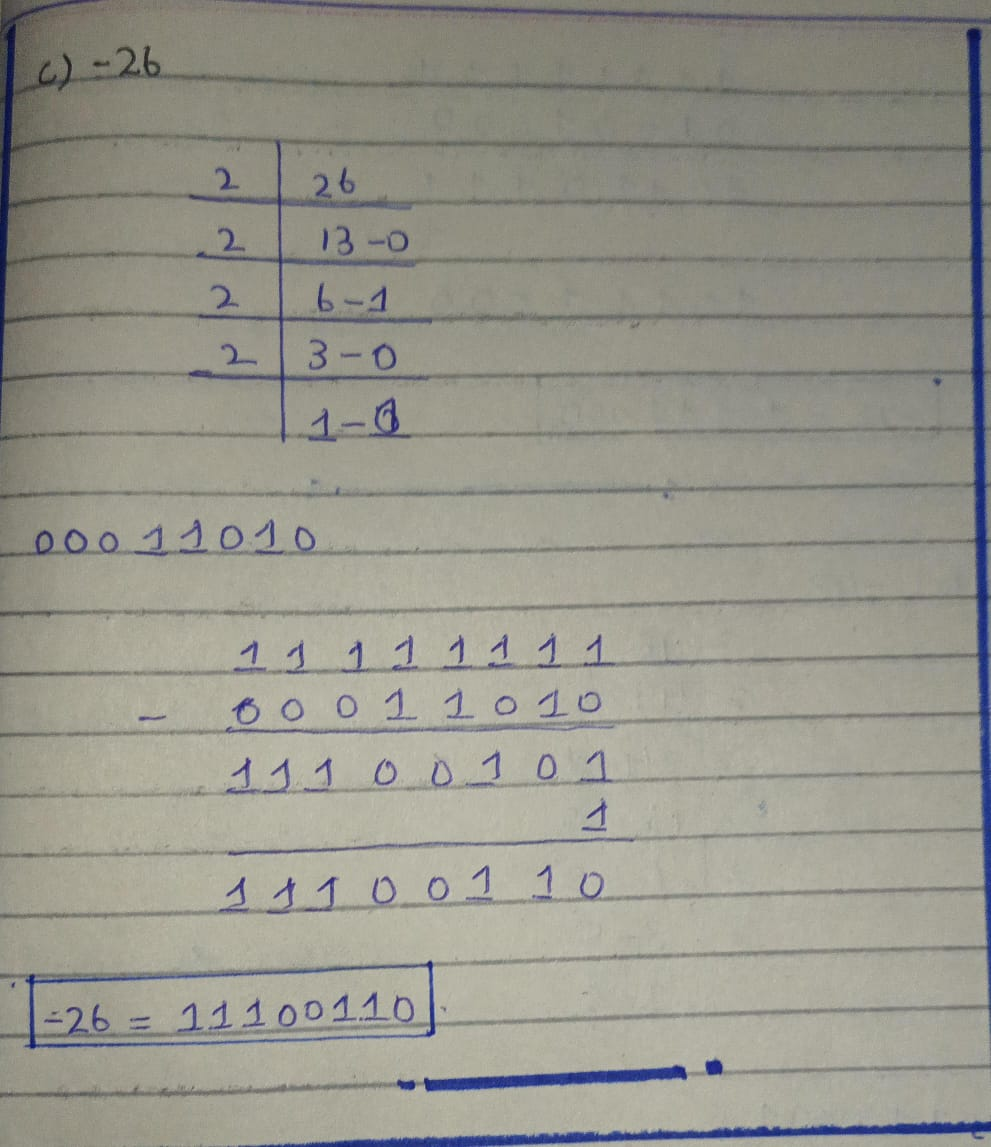 c) -26
2 | 26
2 | 13-0
2 | 6-1
2 | 3-0
1-
00011010
11111111
- 00011010
11100101
1
11100110
-26 = 11100110